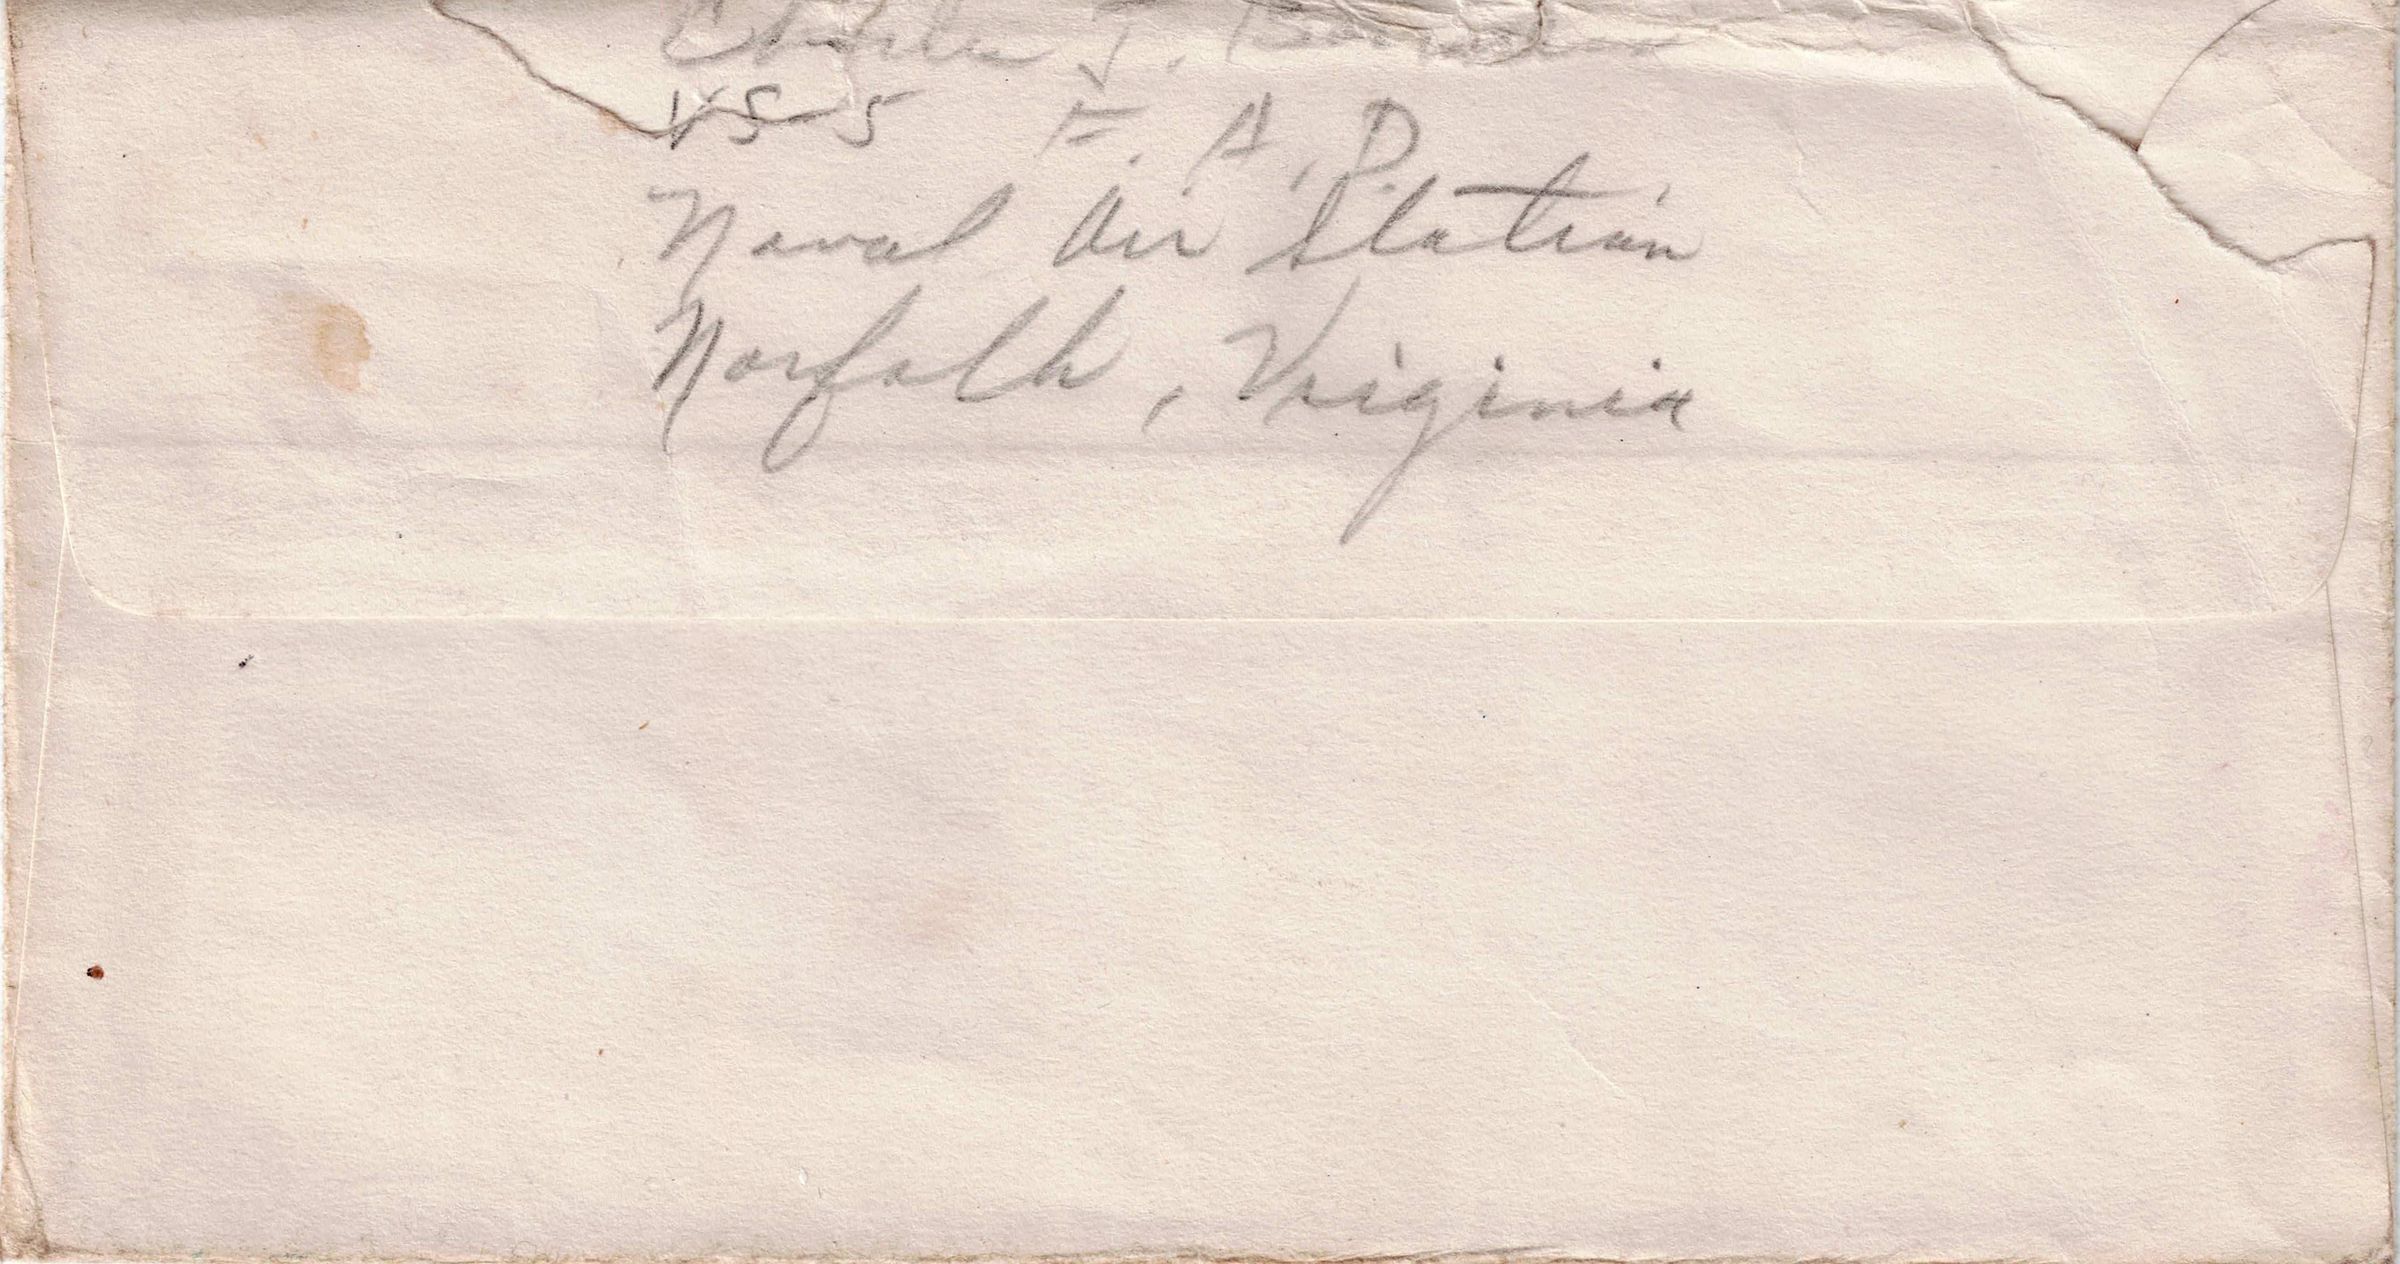 Charles J.
VS-5 F. A. D.
Naval Air Station
Norfolk, Virginia